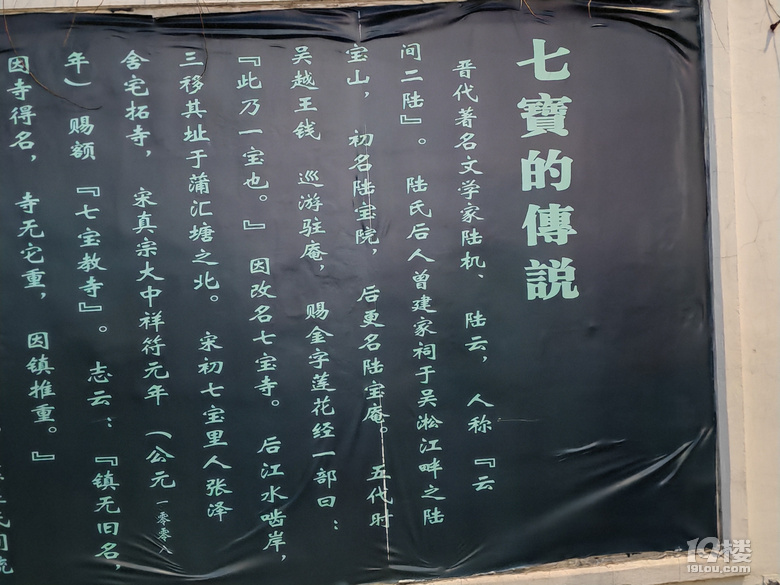 七寶的傳説
晋代著名文学家陆机、陆云，人称『云
间二陆』。陆氏后人曾建家祠于吴淞江畔之陆
宝山，初名陆宝院，后更名陆宝庵。五代时
吴越王钱 巡游驻庵，赐金字莲花经一部曰：
『此乃一宝也。』因改名七宝寺。后江水啮岸，
三移其址于蒲汇塘之北。宋初七宝里人张泽
舍宅拓寺，宋真宗大中祥符元年（公元一零零八
年）赐额『七宝教寺』。志云：『镇无旧名，
因寺得名，寺无它重，因镇推重。』
19楼
19lou.com